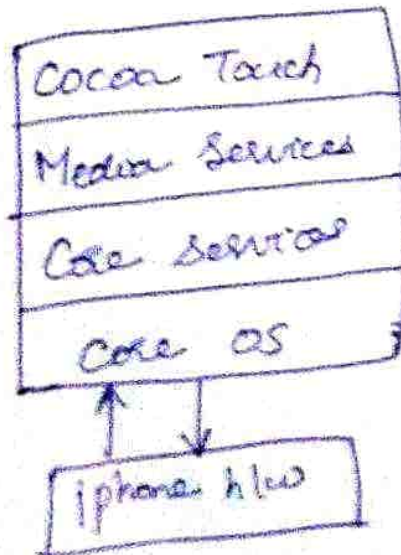 Cocoa Touch
Media Services
Core Services
Core OS
iphone h/w